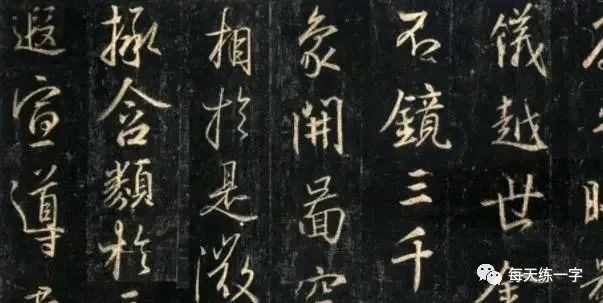 儀越世金
不鏡三千
象開圖空
相於是微
拯含類於
遐宣導
每天练一字